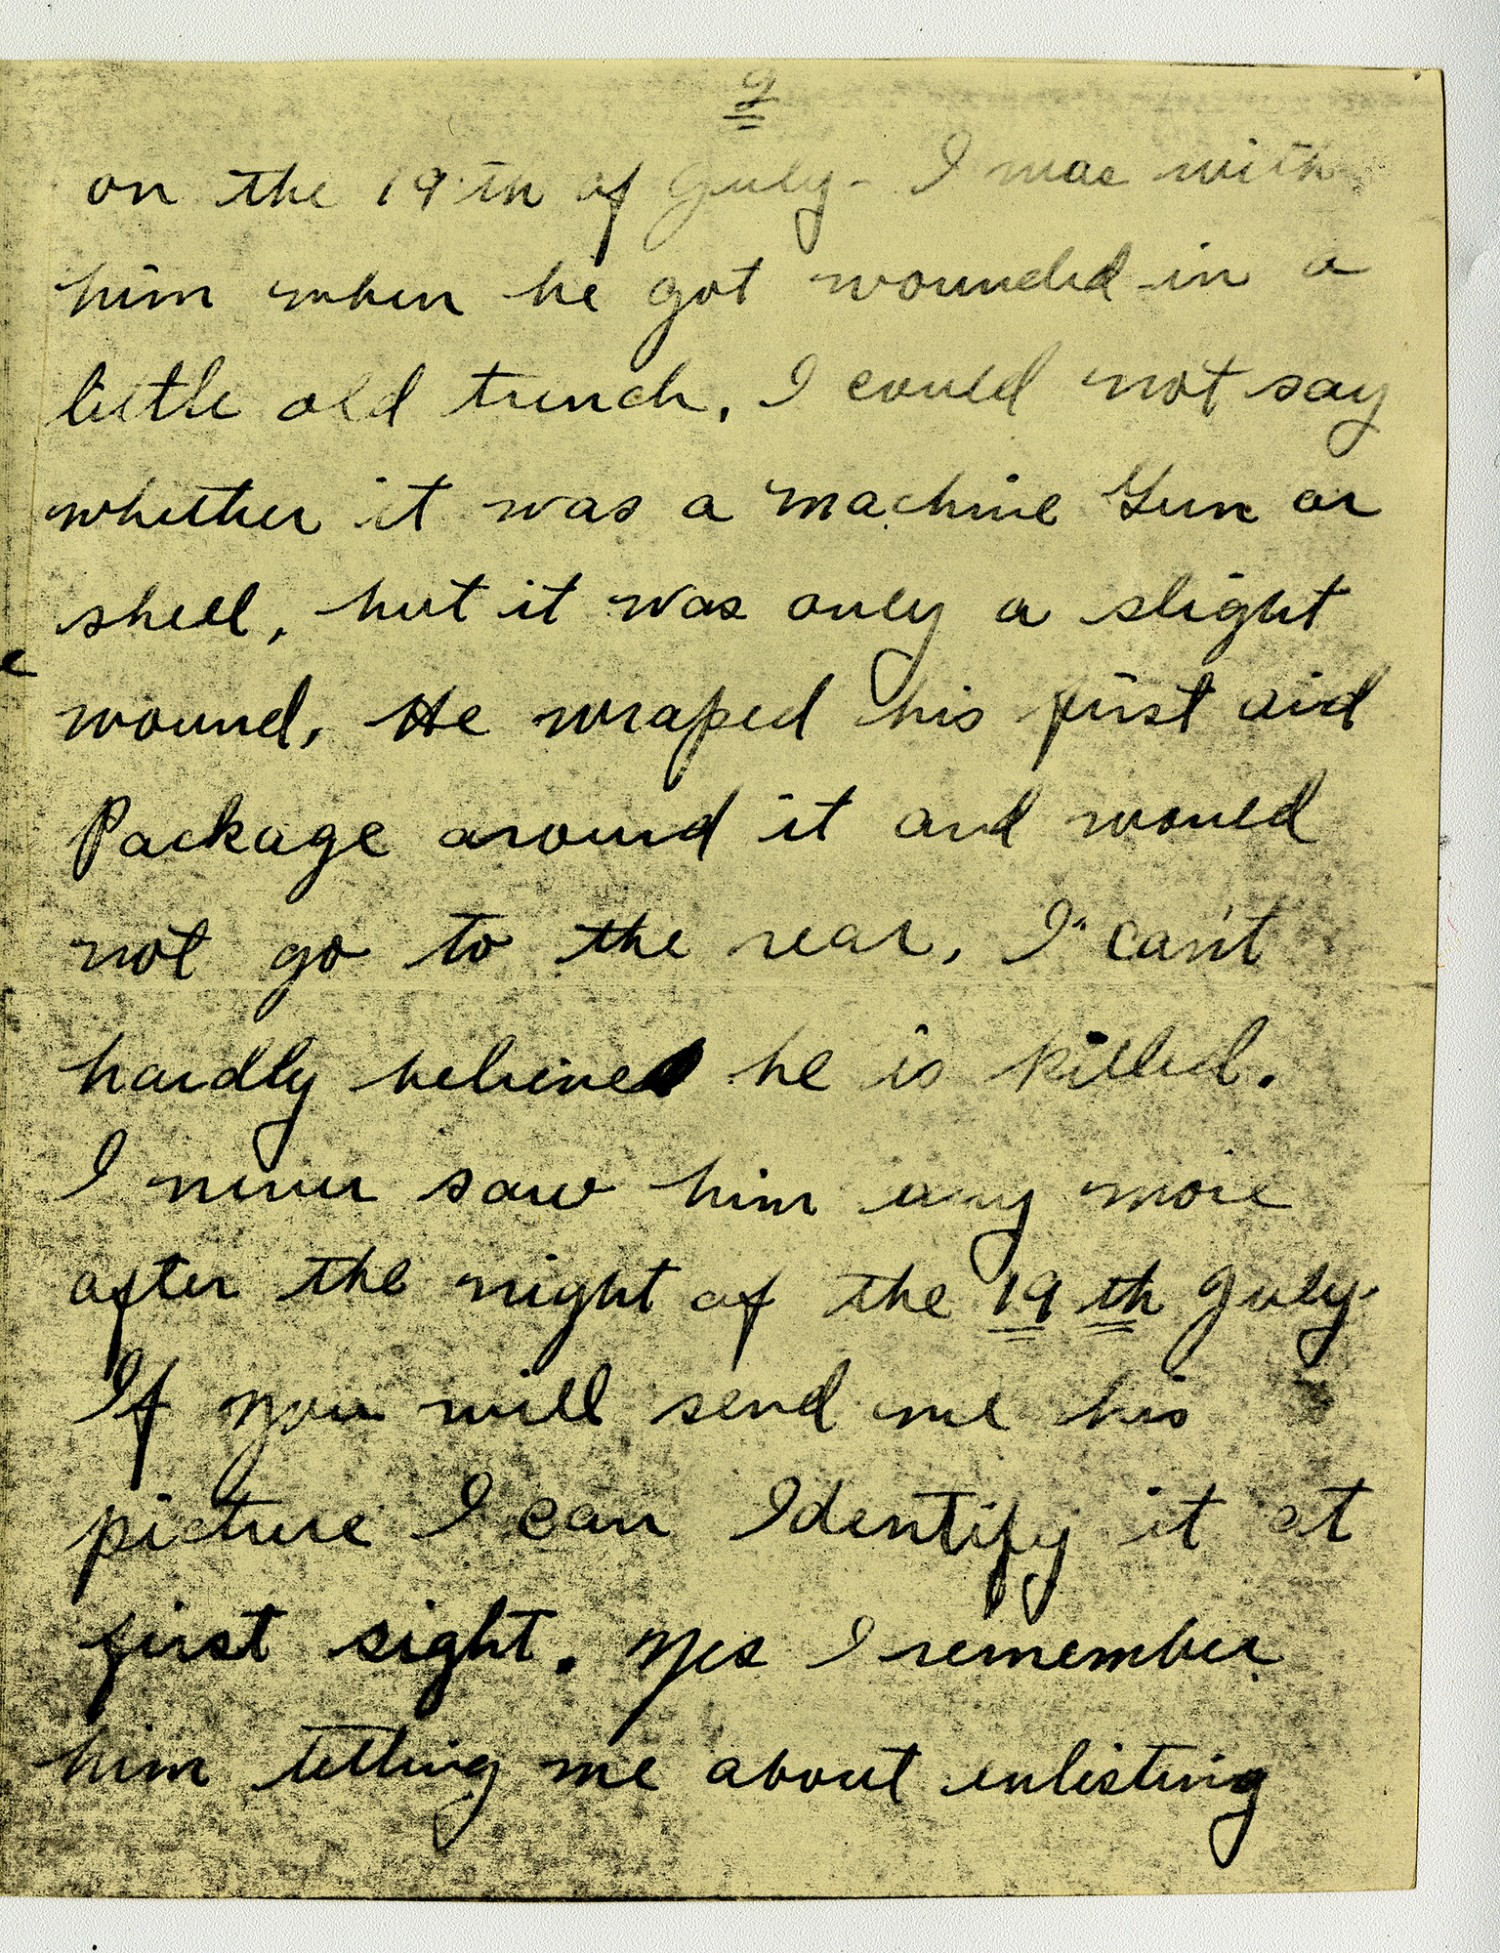 2
on the 19th of July - I was with
him when he got wounded in a
little old trench. I could not say
whether it was a machine Gun or
shell, but it was only a slight
wound. He wraped his first aid
Package around it and would
not go to the rear. I can't
hardly believe he is killed.
I never saw him any more
after the night of the 19th July.
If you will send me his
picture I can Identify it at
first sight. Yes I remember
him telling me about enlisting